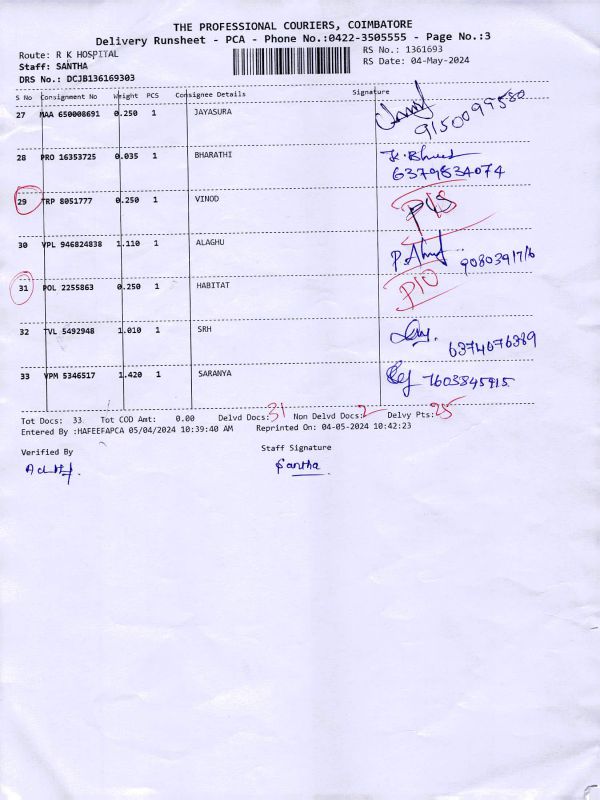 THE PROFESSIONAL COURIERS, COIMBATORE
Delivery Runsheet - PCA - Phone No.:0422-3505555 - Page No.:3
Route: R K HOSPITAL
RS No.: 1361693
Staff: SANTHA
RS Date: 04-May-2024
DRS No.: DCJB136169303
S No Consignment No Weight PCS Consignee Details Signature
27 MAA 650008691 0.250 1 JAYASURA
9150099580
28 PRO 16353725 0.035 1 BHARATHI
6379834074
29 TRP 8051777 0.250 1 VINOD
30 VPL 946824838 1.110 1 ALAGHU
31 POL 2255863 0.250 1 HABITAT P10
32 TVL 5492948 1.010 1 SRH
6374676389
33 VPM 5346517 1.420 1 SARANYA 7603845915
Tot Docs: 33 Tot COD Amt: 0.00 Delvd Docs: 31 Non Delvd Docs: 2 Delvy Pts: 25
Entered By :HAFEEFAPCA 05/04/2024 10:39:40 AM Reprinted On: 04-05-2024 10:42:23
Verified By
Staff Signature
Santha